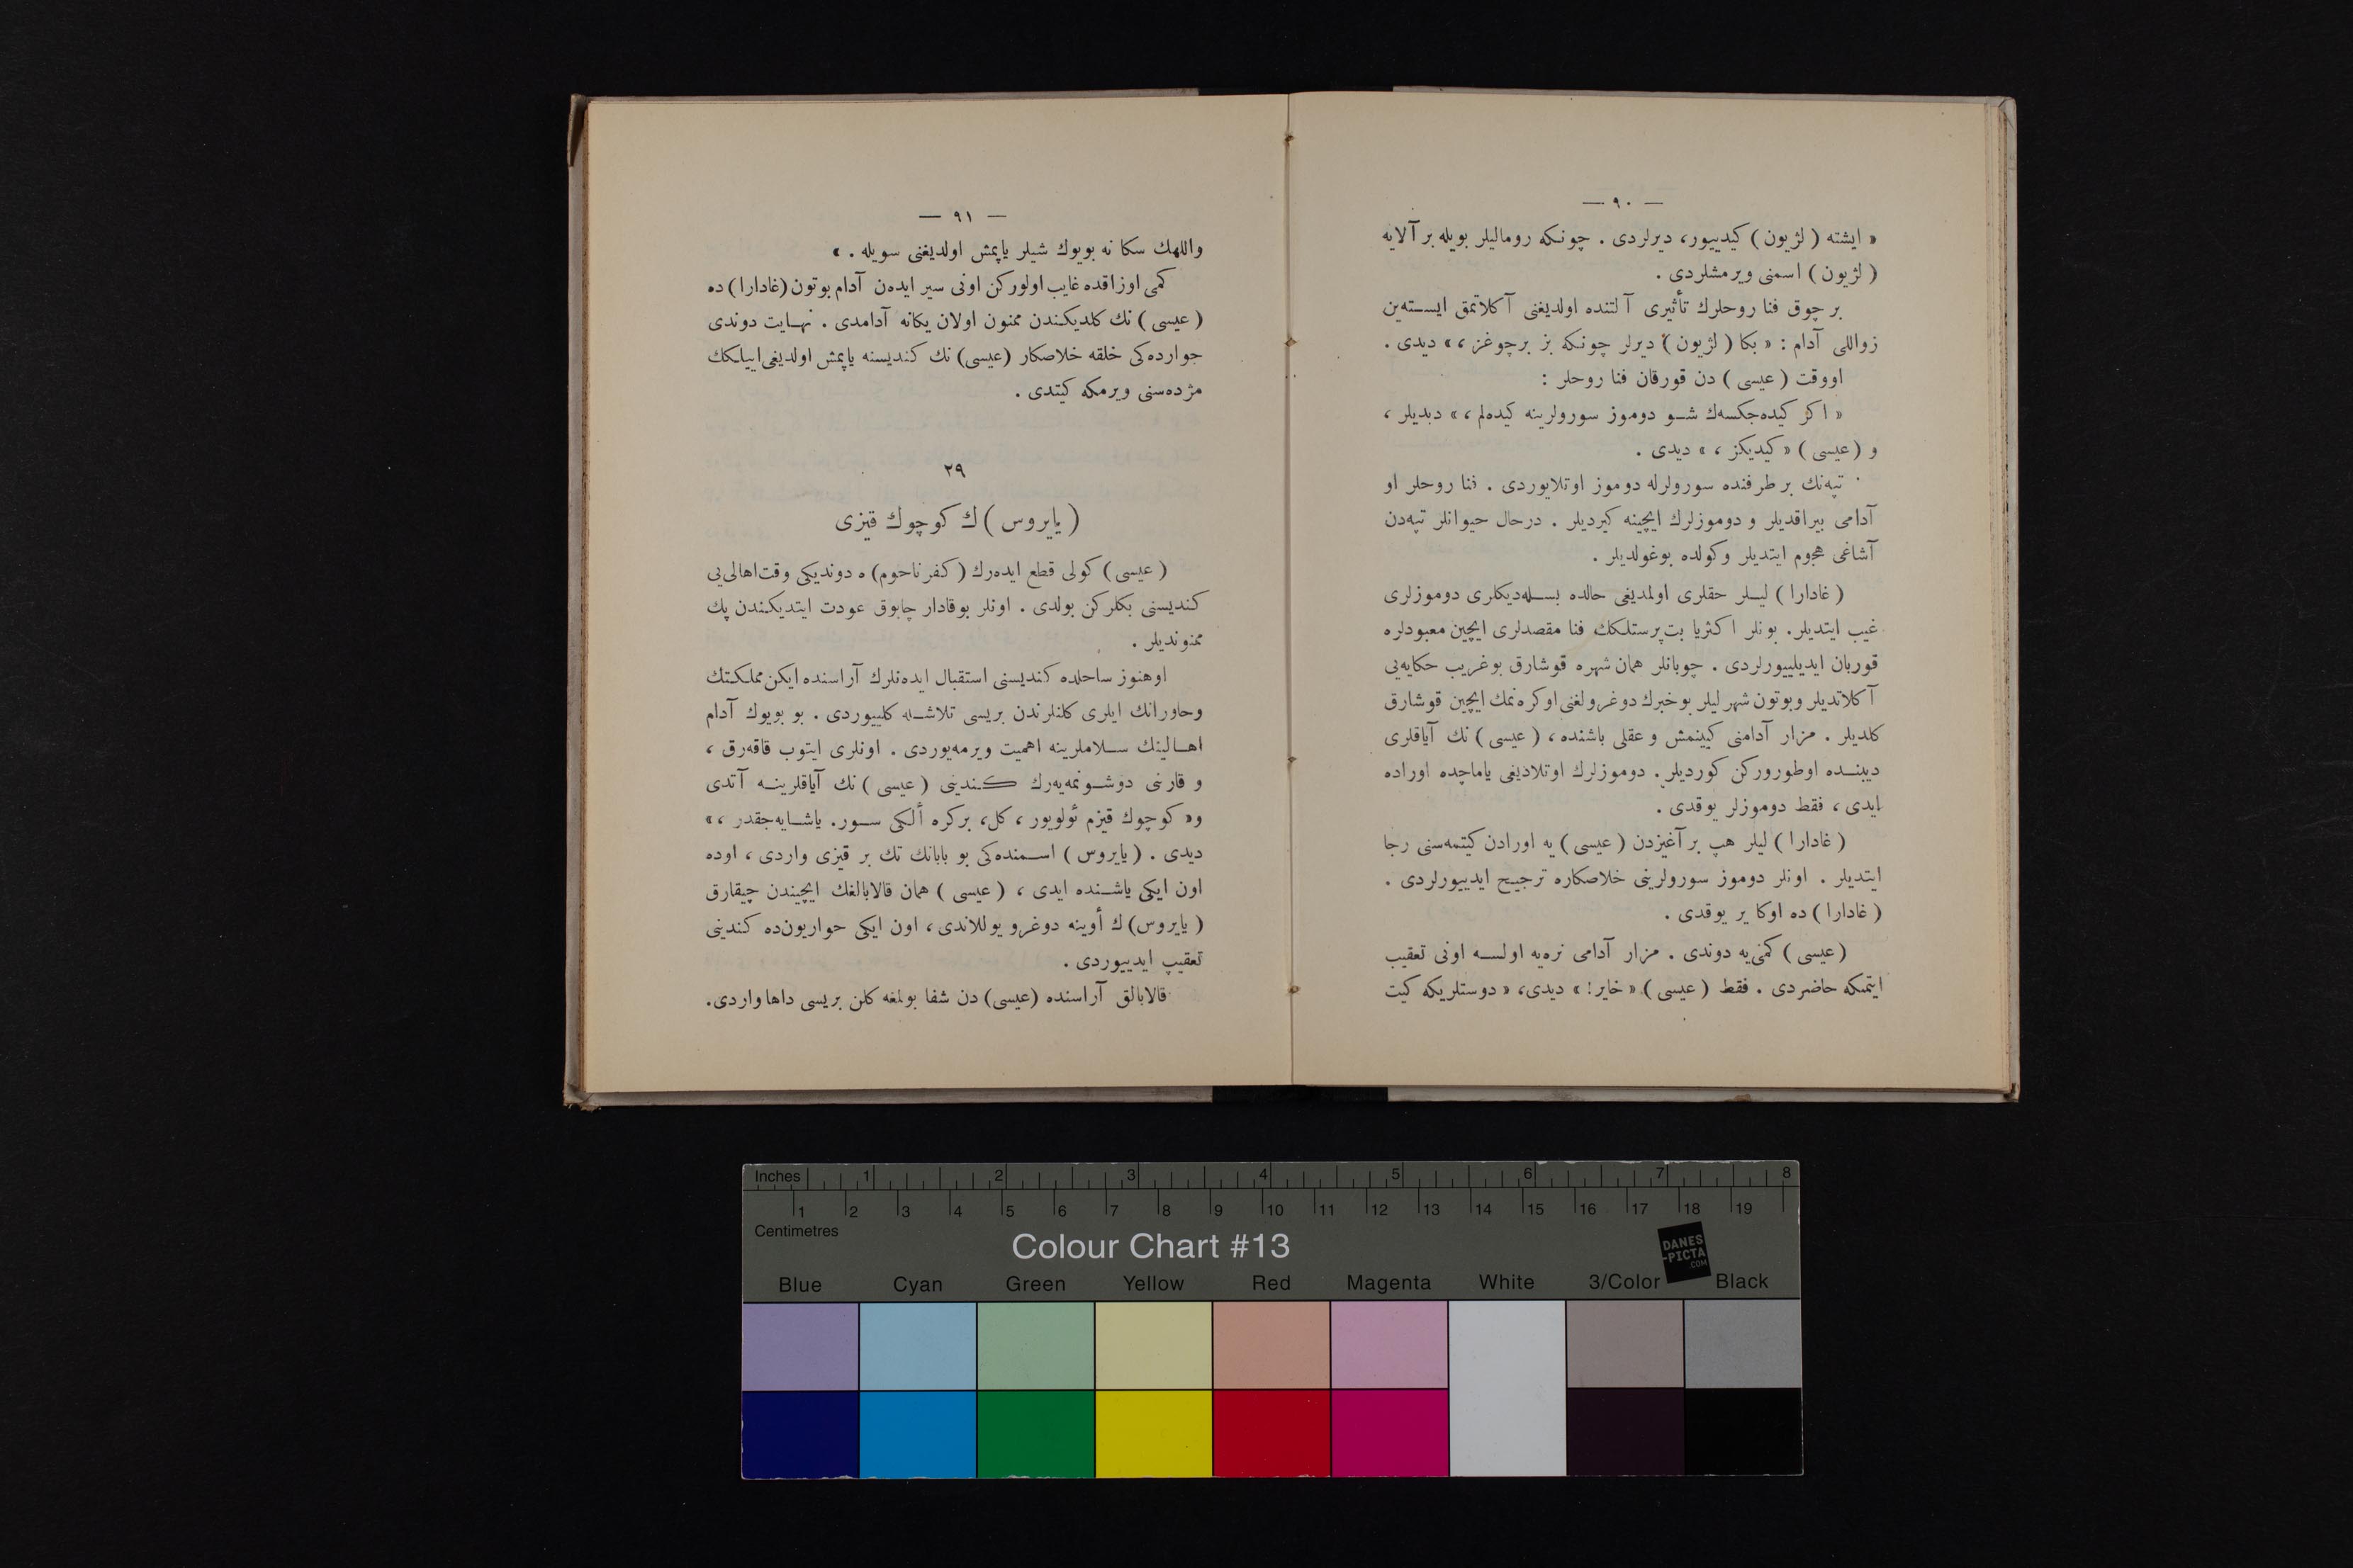 — ٩٠ —
« ایشته ( لژیون ) کیدییور، دیرلردی . چونکه رومالیلر بویله بر آلایه
( لژیون ) اسمنی ویرمشلردی .
بر چوق فنا روحلرك تأثیری آلتنده اولدیغنی آکلاتمق ایسته‌ین
زواللی آدام : « بکا ( لژیون ) دیرلر چونکه بز برچوغز ، » دیدی .
اووقت ( عیسی ) دن قورقان فنا روحلر :
« اکر کیده‌جکسه‌ك شو دوموز سورولرینه کیده‌لم ، » دیدیلر ،
و ( عیسی ) « کیدیکز ، » دیدی .
تپه‌نك بر طرفنده سورولرله دوموز اوتلایوردی . فنا روحلر او
آدامی بیراقدیلر و دوموزلرك ایچینه کیردیلر . درحال حیوانلر تپه‌دن
آشاغی هجوم ایتدیلر وکولده بوغولدیلر .
( غادارا ) لیلر حقلری اولمدیغی حالده بسله‌دیکلری دوموزلری
غیب ایتدیلر. بونلر اکثریا بت‌پرستلکك فنا مقصدلری ایچین معبودلره
قوربان ایدیلییورلردی . چوبانلر همان شهره قوشارق بوغریب حکایه‌یی
آکلاتدیلر وبوتون شهرلیلر بوخبرك دوغرولغنی اوکره‌نمك ایچین قوشارق
کلدیلر . مزار آدامنی کیینمش و عقلی باشنده ، ( عیسی ) نك آیاقلری
دیبنده اوطورورکن کوردیلر. دوموزلرك اوتلادیغی یاماچده اوراده
ایدی ، فقط دوموزلر یوقدی .
( غادارا ) لیلر هپ بر آغیزدن ( عیسی ) یه اورادن کیتمه‌سنی رجا
ایتدیلر . اونلر دوموز سورولرینی خلاصکاره ترجیح ایدییورلردی .
( غادارا ) ده اوکا یر یوقدی .
( عیسی ) کمی‌یه دوندی . مزار آدامی نره‌یه اولسه اونی تعقیب
ایتمکه حاضردی . فقط ( عیسی ) « خایر! » دیدی، « دوستلریکه کیت
— ٩١ —
واللهك سکا نه بویوك شیلر یاپمش اولدیغنی سویله . »
کمی اوزاقده غایب اولورکن اونی سیر ایده‌ن آدام بوتون (غادارا) ده
( عیسی ) نك کلدیکندن ممنون اولان یکانه آدامدی . نهایت دوندی
جوارده‌کی خلقه خلاصکار (عیسی) نك کندیسنه یاپمش اولدیغی اییلکك
مژده‌سنی ویرمکه کیتدی .
٢٩
( یایروس ) ك کوچوك قیزی
( عیسی ) کولی قطع ایده‌رك ( کفرناحوم) ه دوندیکی وقت اهالی‌یی
کندیسنی بکلرکن بولدی . اونلر بوقادار چابوق عودت ایتدیکندن پك
ممنوندیلر .
اوهنوز ساحلده کندیسنی استقبال ایده‌نلرك آراسنده ایکن مملکتك
وحاورانك ایلری کلنلرندن بریسی تلاشله کلییوردی . بو بویوك آدام
اهالینك سلاملرینه اهمیت ویرمه‌یوردی . اونلری ایتوب قاقه‌رق ،
و قارنی دوشونمه‌یه‌رك کندینی ( عیسی ) نك آیاقلرینه آتدی
و« کوچوك قیزم ئولویور ، کل، برکره ألکی سور. یاشایه‌جقدر ، »
دیدی . ( یایروس ) اسمنده‌کی بو بابانك تك بر قیزی واردی ، اوده
اون ایکی یاشنده ایدی ، ( عیسی ) همان قالابالغك ایچیندن چیقارق
( یایروس) ك أوینه دوغرو یوللاندی ، اون ایکی حواریون‌ده کندینی
تعقیپ ایدییوردی .
قالابالق آراسنده (عیسی) دن شفا بولمغه کلن بریسی داها واردی.
Inches 1 2 3 4 5 6 7 8
1 2 3 4 5 6 7 8 9 10 11 12 13 14 15 16 17 18 19
Centimetres
Colour Chart #13
DANES
-PICTA
.COM
Blue Cyan Green Yellow Red Magenta White 3/Color Black